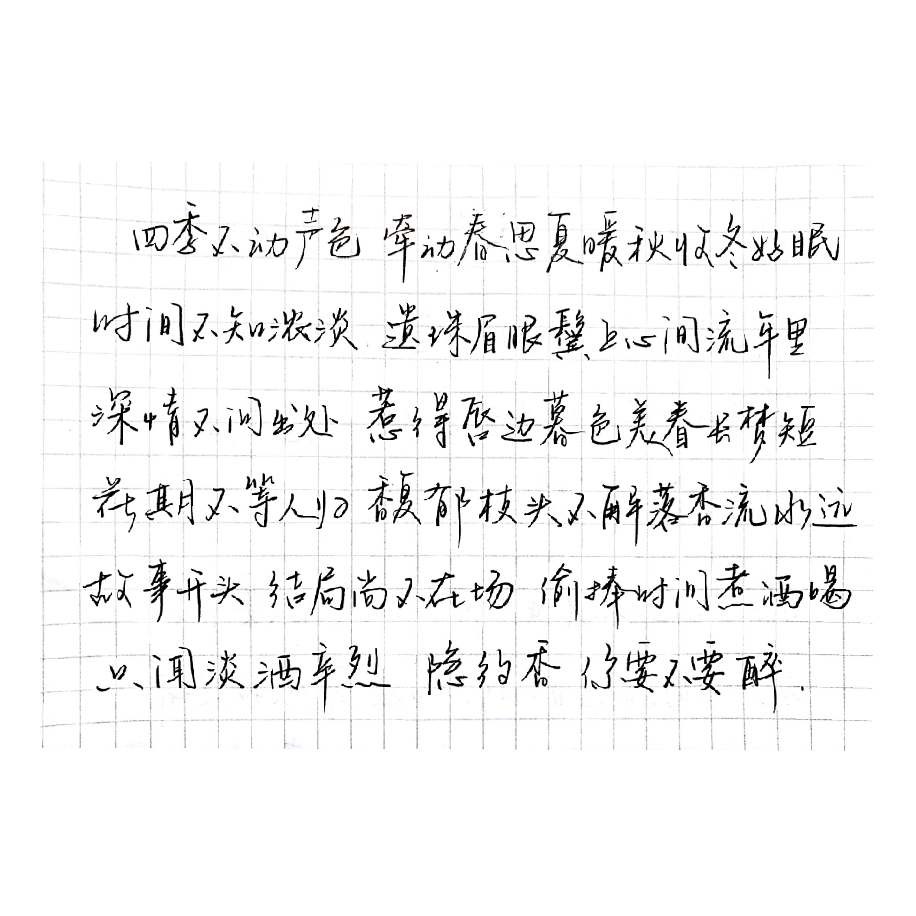 四季不动声色 牵动春思夏暖秋收冬始眠
时间不知浓淡 遗珠眉眼鬓上心间流年里
深情不问出处 惹得唇边暮色美春长梦短
花期不等人归 馥郁枝头不解落香流水远
故事开头 结局尚不在场 偷捧时间煮酒喝
只闻淡酒辛烈 隐约香 你要不要醉.